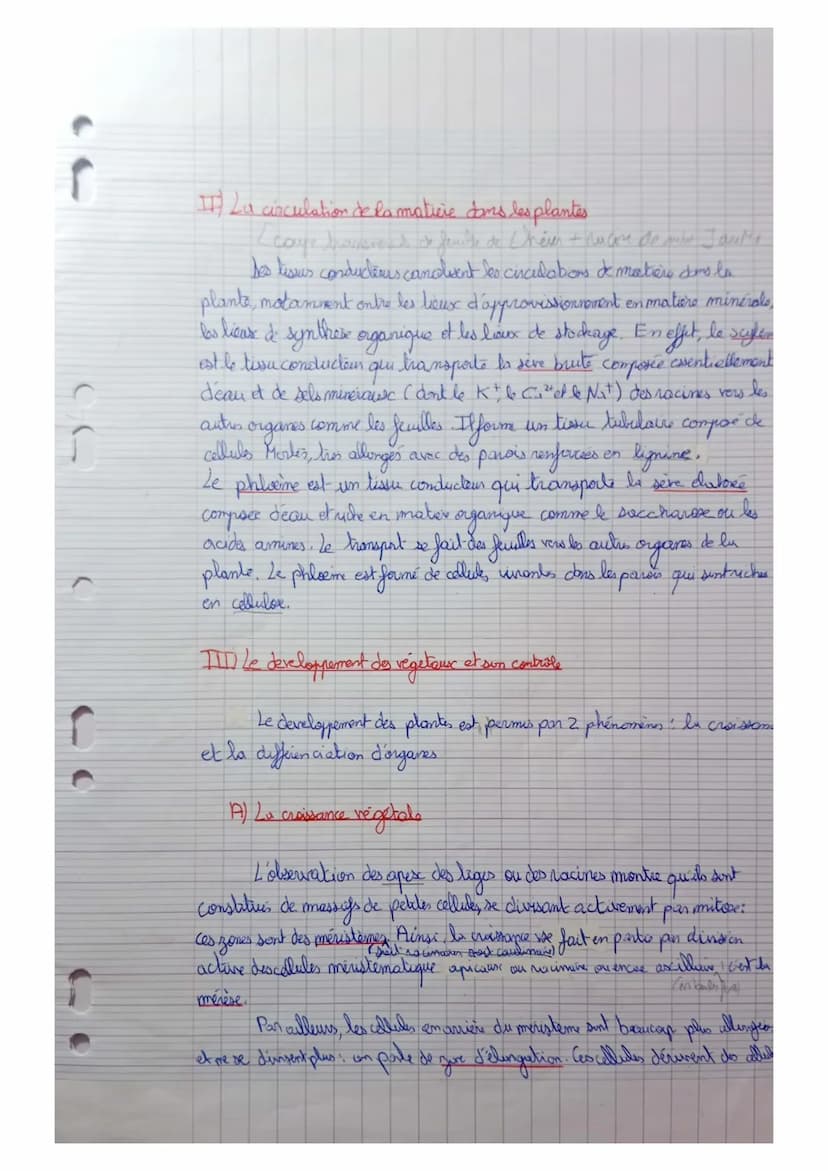 II) La circulation de la matière dans les plantes
Les tissus conducteurs canalisent les circulations de matière dans la
plante, notamment entre les lieux d'approvisionnement en matière minérale,
les lieux de synthèse organique et les lieux de stockage. En effet, le xylèm
est le tissu conducteur qui transporte la sève brute composée essentiellement
d'eau et de sels minéraux (dont le K+, le Ca2+ et le Na+) des racines vers les
autres organes comme les feuilles. Il forme un tissu tubulaire composé de
cellules Mortes, très allongés avec des parois renforcées en lignine.
Le phloème est un tissu conducteur qui transporte la sève élaborée
composée d'eau et riche en matière organique comme le saccharose ou les
acides aminés. Le transport se fait des feuilles vers les autres organes de la
plante. Le phloème est formé de cellules vivantes dans les parois qui sont riches
en cellulose.
III) Le developpement des végetaux et son contrôle
Le developpement des plantes est permis par 2 phénomènes : la croissan
et la différenciation d'organes
A) La croissance végétale
L'observation des apex des tiges ou des racines montre qu'ils sont
constitués de massifs de petites cellules, se divisant activement par mitose :
ces zones sont des méristèmes. Ainsi, la croissance se fait en partie par division
active des cellules méristématique apicaux ou racinaire ou encore axillaire, c'est la
mérèse.
Par ailleurs, les cellules en arrière du méristème sont beaucoup plus allongées
et ne se divisent plus : on parle de zone d'élongation. Ces cellules dérivent des cellul